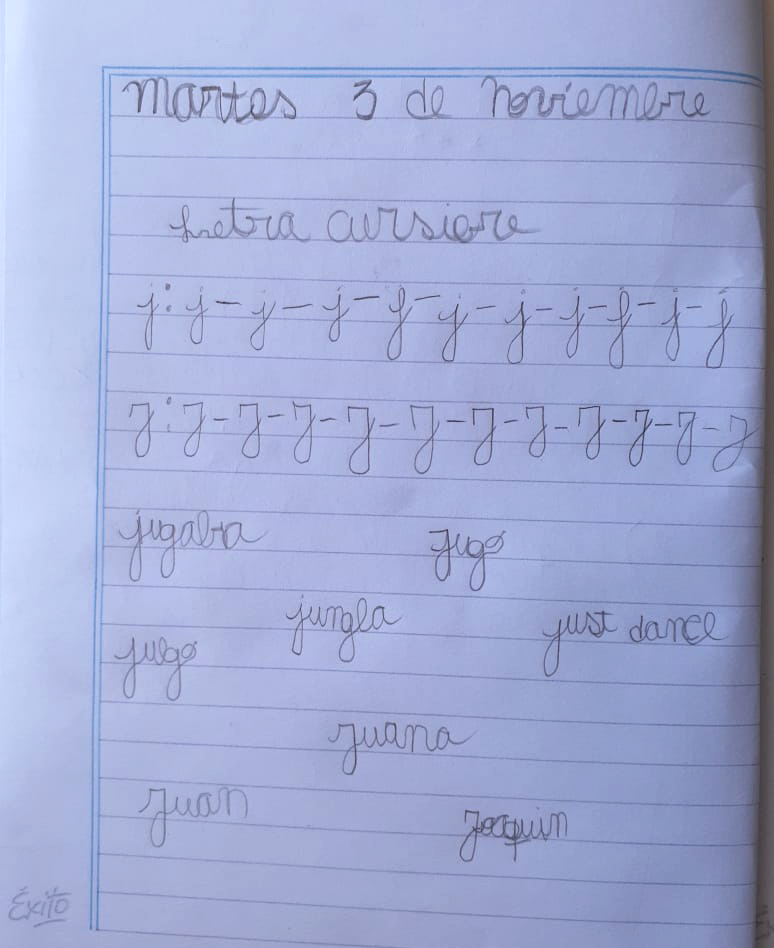 Martes 3 de noviembre
Letra cursiva
j: j - j - j - j - j - j - j - j - j - j
J: J - J - J - J - J - J - J - J - J - J - J
jugaba Jugo
jungla just dance
julgo
Juana
Juan Joaquin
Éxito